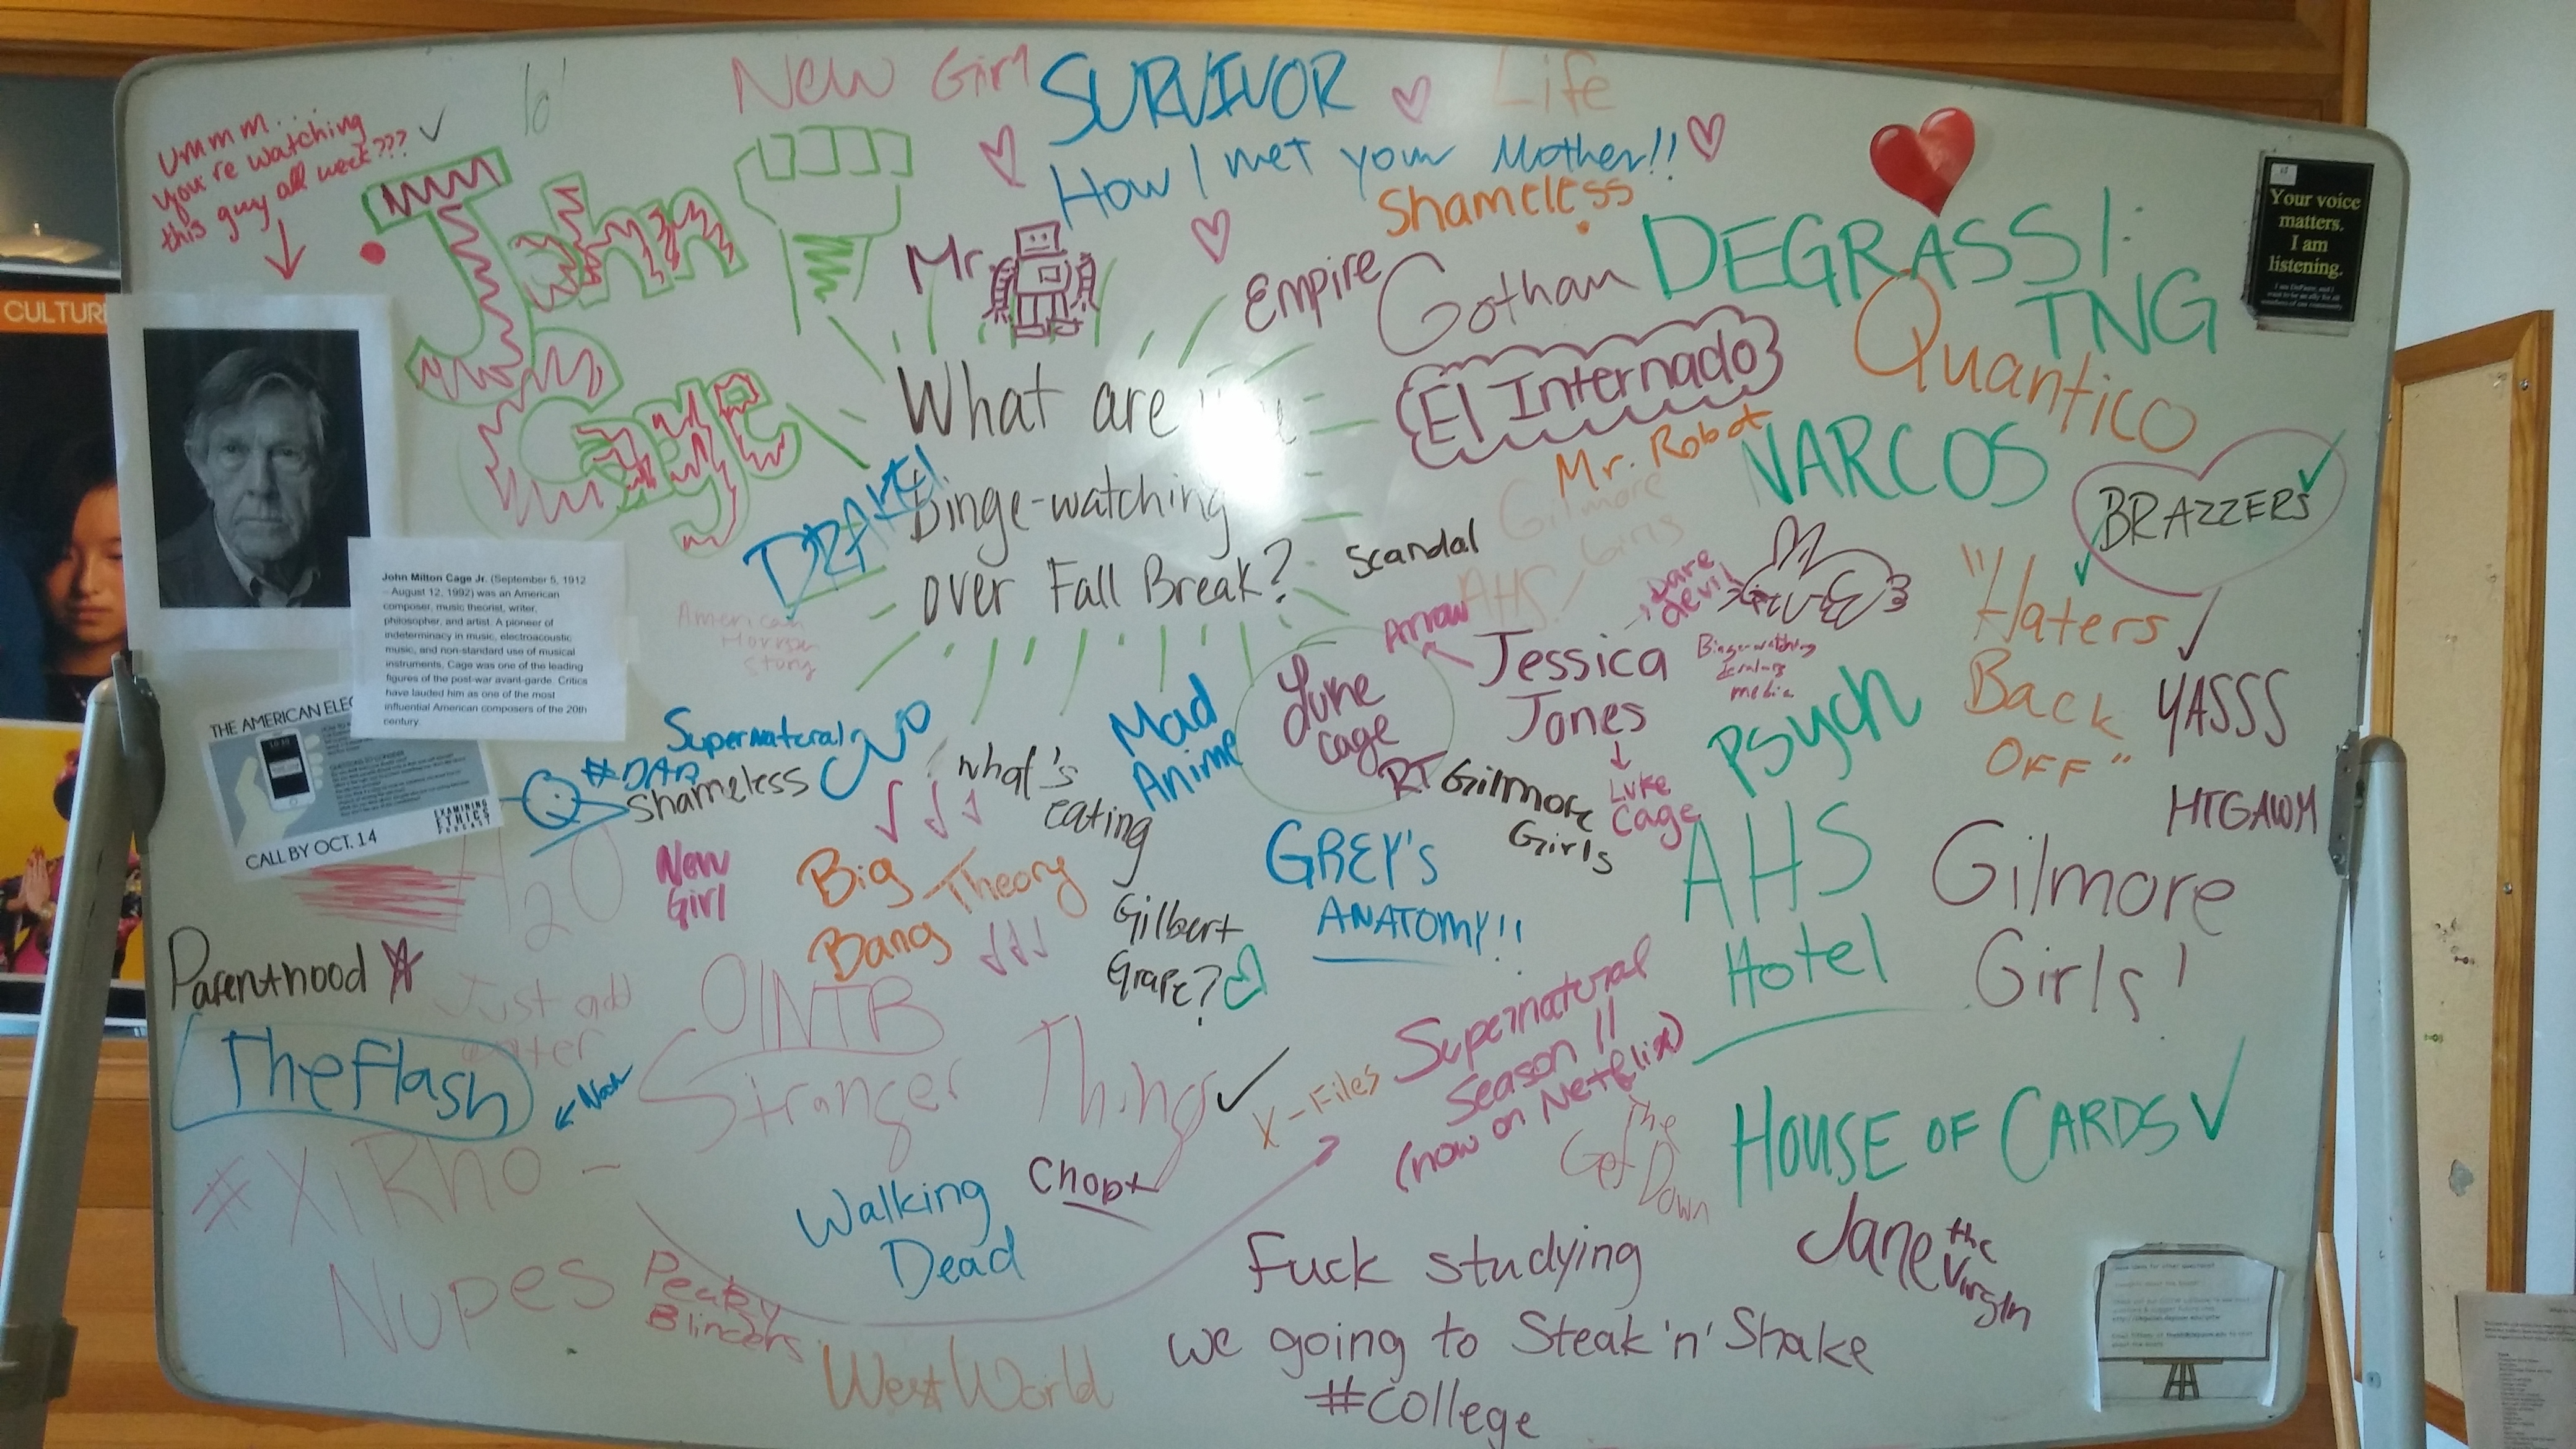 New Girl
SURVIVOR
Life
Ummm...
you're watching
this guy all week???
How I met your Mother!!
Shameless
John
Cage
Mr.
Empire
Gotham
DEGRASSI:
TNG
Your voice
matters.
I am
listening.
CULTUR
What are
Binge-watching
over Fall Break?
El Internado
Quantico
Mr. Robot
NARCOS
BRAZZERS
DRAKE!
Gilmore
Girls
Scandal
AHS!
American
Horror
Story
Arrow
Dare
devil
Jessica
Jones
Luke
Cage
"Haters
Back
OFF"
YASSS
HTGAWM
John Milton Cage Jr. (September 5, 1912
– August 12, 1992) was an American
composer, music theorist, writer,
philosopher, and artist. A pioneer of
indeterminacy in music, electroacoustic
music, and non-standard use of musical
instruments, Cage was one of the leading
figures of the post-war avant-garde. Critics
have lauded him as one of the most
influential American composers of the 20th
century.
THE AMERICAN ELEC
CALL BY OCT. 14
EXAMINING
ETHICS
PODCAST
Supernatural
#DAB
Shameless
what's
eating
Gilbert
Grape?
Mad
Anime
cage
RT Gilmore
Girls
Psych
New
Girl
Big
Bang
Theory
GREY'S
ANATOMY!!
AHS
Hotel
Gilmore
Girls!
H2O
Just add
water
Parenthood
The Flash
Now
OINTB
Stranger Things
X-Files
Supernatural
Season 11
(now on Netflix)
The
Get
Down
HOUSE OF CARDS
#XiRho
Nupes
Peaky
Blinders
Walking
Dead
West World
Jane the
Virgin
Fuck studying
we going to Steak 'n' Shake
#college